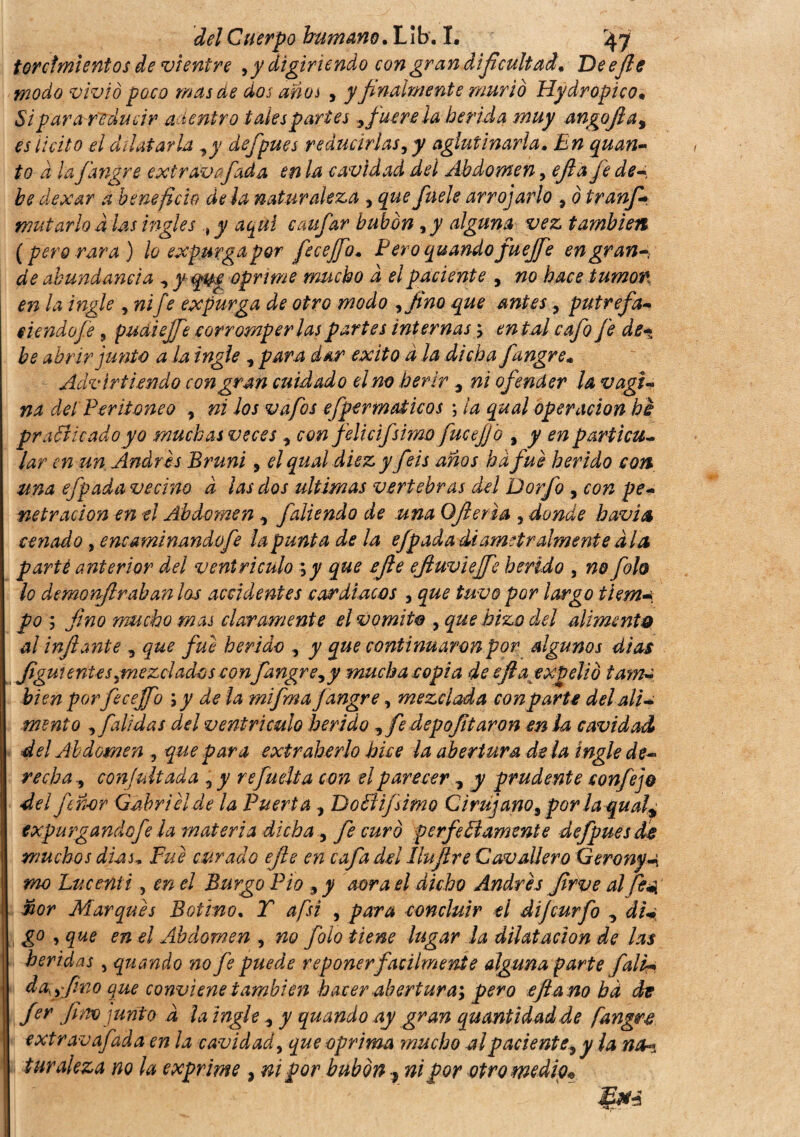 del Cuerpo humano. Lib. I. 47
torcimientos de vientre , y digiriendo con gran dificultad. De eſte
modo vivió poco mas de dos años , y finalmente murió Hydropico.
Si para reducir adentro tales partes , fuere la herida muy angoſta,
es licito el dilatarla , y deſpues reducirlas, y aglutinarla. En quan-
to à la ſangre extravaſada en la cavidad del Abdomen , eſta ſe de-
be dexar à beneficio de la naturaleza , que ſuele arrojarlo , ò tranſ-
mutarlo à las ingles , y aqui cauſar bubòn , y alguna vez tambien
( pero rara ) lo expurga por ſeceſſo. Pero quando fueſſe en gran-
de abundancia , y que oprime mucho à el paciente , no hace tumor
en la ingle , ni ſe expurga de otro modo , ſino que antes , putrefa-
ciendoſe , pudieſſe corromper las partes internas ; en tal caſo ſe de-
be abrir junto a la ingle , para dar exito à la dicha ſangre.
Advirtiendo con gran cuidado el no herir , ni ofender la vagi-
na del Peritoneo , ni los vaſos eſpermaticos ; la qual operacion hè
practicado yo muchas veces , con feliciſsimo ſuceſſo , y en particu-
lar en un Andrès Bruni , el qual diez y ſeis años hà fuè herido con
una eſpada vecino à las dos ultimas vertebras del Dorſo , con pe-
netracion en el Abdomen , ſaliendo de una Oſteria , donde havia
cenado , encaminandoſe la punta de la eſpada diametralmente à la
parte anterior del ventriculo ; y que eſte eſtuvieſſe herido , no ſolo
lo demonſtraban los accidentes cardiacos , que tuvo por largo tiem-
po ; ſino mucho mas claramente el vomito , que hizo del alimento
al inſtante , que fuè herido , y que continuaron por algunos dias
ſiguientes, mezclados con ſangre, y mucha copia de eſta expeliò tam-
bien por ſeceſſo ; y de la miſma ſangre , mezclada con parte del ali-
mento , ſalidas del ventriculo herido , ſe depoſitaron en la cavidad
del Abdomen , que para extraherlo hice la abertura de la ingle de-
recha , conſultada , y reſuelta con el parecer , y prudente conſejo
del ſeñor Gabrièl de la Puerta , Doctiſsimo Cirujano, por la qual,
expurgandoſe la materia dicha , ſe curò perfectamente deſpues de
muchos dias. Fuè curado eſte en caſa del Iluſtre Cavallero Gerony-
mo Lucenti , en el Burgo Pio , y aora el dicho Andrès ſirve al ſe-
ñor Marquès Botino. Y aſsi , para concluir el diſcurſo , di-
go , que en el Abdomen , no ſolo tiene lugar la dilatacion de las
heridas , quando no ſe puede reponer facilmente alguna parte ſali-
da, ſino que conviene tambien hacer abertura; pero eſta no hà de
ſer ſino junto à la ingle , y quando ay gran quantidad de ſangre
extravaſada en la cavidad, que oprima mucho al paciente, y la na-
turaleza no la exprime , ni por bubòn , ni por otro medio.
Exi-